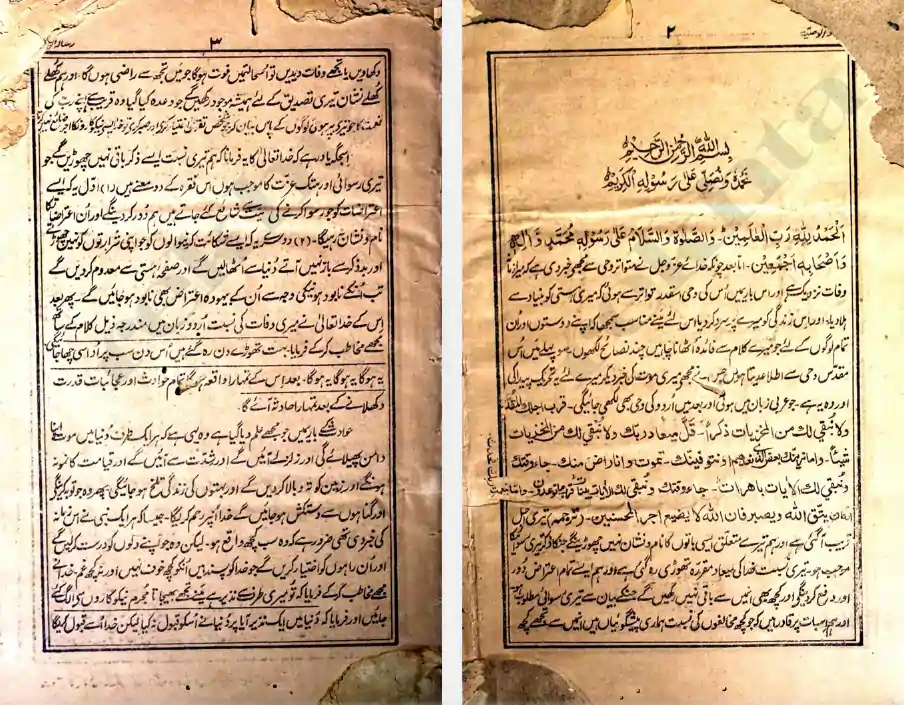 ۲
بِسْمِ اللّٰهِ الرَّحْمٰنِ الرَّحِيْمِ
نَحْمَدُهٗ وَنُصَلِّىْ عَلٰى رَسُوْلِهِ الْكَرِيْمِ
اَلْحَمْدُ لِلّٰهِ رَبِّ الْعَالَمِيْنَ۔ وَالصَّلٰوةُ وَالسَّلَامُ عَلٰى رَسُوْلِهٖ مُحَمَّدٍ وَّاٰلِهٖ
وَاَصْحَابِهٖ اَجْمَعِيْنَ۔ اما بعد چونکہ خدائے عز و جل نے متواتر وحی سے مجھے خبر دی ہے کہ میرا زمانہ
وفات نزدیک ہے اور اس بارے میں اُس کی وحی اسقدر تواتر سے ہوئی کہ میری ہستی کو بنیاد سے
ہلا دیا۔ اور اس زندگی کو میرے پر سرد کر دیا اس لئے مینے مناسب سمجھا کہ اپنے دوستوں اور اُن
تمام لوگوں کے لئے جو میرے کلام سے فائدہ اُٹھانا چاہیں چند نصائح لکھوں۔ سو پہلے میں اُس
مقدس وحی سے اطلاع دیتا ہوں جس نے مجھے میری موت کی خبر دیکر میرے لئے یہ تحریک پیدا کی
اور وہ یہ ہے۔ جو عربی زبان میں ہوئی اور بعد میں اُردو کی وحی بھی لکھی جائیگی۔ قرب اجلك المقدر
ولا نبقى لك من المخزيات ذكرا۔ قل ميعاد ربك ولا نبقى لك من المخزيات
شيئا۔ واما نرينك بعض الذى نعدهم او نتوفينك۔ تموت وانا راض منك۔ جاء وقتك
ونبقى لك الايات باهرات۔ جاء وقتك ونبقى لك الايات بينات قرب ما توعدون۔ واما بنعمة
يتق الله ويصبر فان الله لا يضيع اجر المحسنين۔ (ترجمہ) تیری اجل
قریب آ گئی ہے اور ہم تیرے متعلق ایسی باتوں کا نام و نشان نہیں چھوڑینگے جنکا ذکر تیری رسوائی کا
موجب ہو۔ تیری نسبت خدا کی میعاد مقررہ تھوڑی رہ گئی ہے اور ہم ایسے تمام اعتراض دُور
اور دفع کر دینگے اور کچھ بھی انمیں سے باقی نہیں رکھیں گے جنکے بیان سے تیری رسوائی مطلوب ہو
اور ہم اسبات پر قادر ہیں کہ جو کچھ مخالفوں کی نسبت ہماری پیشگوئیاں ہیں انمیں سے تجھے کچھ
۳
دکھاویں یا تجھے وفات دیدیں تو اُسحالتمیں فوت ہوگا جو میں تجھ سے راضی ہوں گا۔ اور ہم کھلے
کھلے نشان تیری تصدیق کے لئے ہمیشہ موجود رکھینگے جو وعدہ کیا گیا وہ قریب ہے اپنے رب کی
نعمت کا جو تیرے پر ہوئی لوگوں کے پاس بیان کر جو شخص تقویٰ اختیار کرے اور صبر کرے تو خدا ایسے نیکوکاروں کا اجر ضائع نہیں کرتا
اسجگہ یاد رہے کہ خدا تعالیٰ کا یہ فرمانا کہ ہم تیری نسبت ایسے ذکر باقی نہیں چھوڑینگے جو
تیری رسوائی اور ہتک عزت کا موجب ہوں اس فقرہ کے دو معنے ہیں (۱) اوّل یہ کہ ایسے
اعتراضات کو جو رسوا کرنے کی نیت سے شائع کئے جاتے ہیں ہم دور کر دینگے اور اُن اعتراضات کا
نام و نشان نہ رہیگا۔ (۲) دوسرے یہ کہ ایسے شکایت کرنیوالوں کو جو اپنی شرارتوں کو نہیں چھوڑتے
اور بد ذکر سے باز نہیں آتے دُنیا سے اُٹھالیں گے اور صفحہ ہستی سے معدوم کر دیں گے
تب اُنکے نابود ہونیکی وجہ سے اُن کے بیہودہ اعتراض بھی نابود ہو جائیں گے۔ پھر بعد
اِس کے خدا تعالیٰ نے میری وفات کی نسبت اُردو زبان میں مندرجہ ذیل کلام کے ساتھ
مجھے مخاطب کر کے فرمایا۔ بہت تھوڑے دن رہ گئے ہیں اُس دن سب پر اُداسی چھا جائیگی
یہ ہوگا یہ ہوگا یہ ہوگا۔ بعد اس کے تمہارا واقعہ ہوگا تمام حوادث اور عجائبات قدرت
دکھلانے کے بعد تمہارا حادثہ آئے گا۔
حوادث کے بارے میں جو مجھے علم دیا گیا ہے وہ یہی ہے کہ ہر ایک طرف دُنیا میں موت اپنا
دامن پھیلائے گی اور زلزلے آئیں گے اور شدت سے آئیں گے اور قیامت کا نمونہ
ہونگے اور زمین کو تہ و بالا کر دیں گے اور بہتوں کی زندگی تلخ ہو جائیگی۔ پھر وہ جو توبہ کرینگے
اور گناہوں سے دستکش ہو جائیں گے خدا اُنپر رحم کریگا۔ جیسا کہ ہر ایک نبی نے اس زمانہ
کی خبر دی تھی ضرور ہے کہ وہ سب کچھ واقع ہو۔ لیکن وہ جو اپنے دلوں کو درست کر لیں گے
اور اُن راہوں کو اختیار کریں گے جو خدا کو پسند ہیں اُنکو کچھ خوف نہیں اور نہ کچھ غم۔ خدا نے
مجھے مخاطب کر کے فرمایا کہ تو میری طرف سے نذیر ہے مینے تجھے بھیجا تا مجرم نیکوکاروں سے الگ کئے
جائیں اور فرمایا کہ دُنیا میں ایک نذیر آیا پر دُنیا نے اُسکو قبول نہ کیا لیکن خدا اُسے قبول کریگا